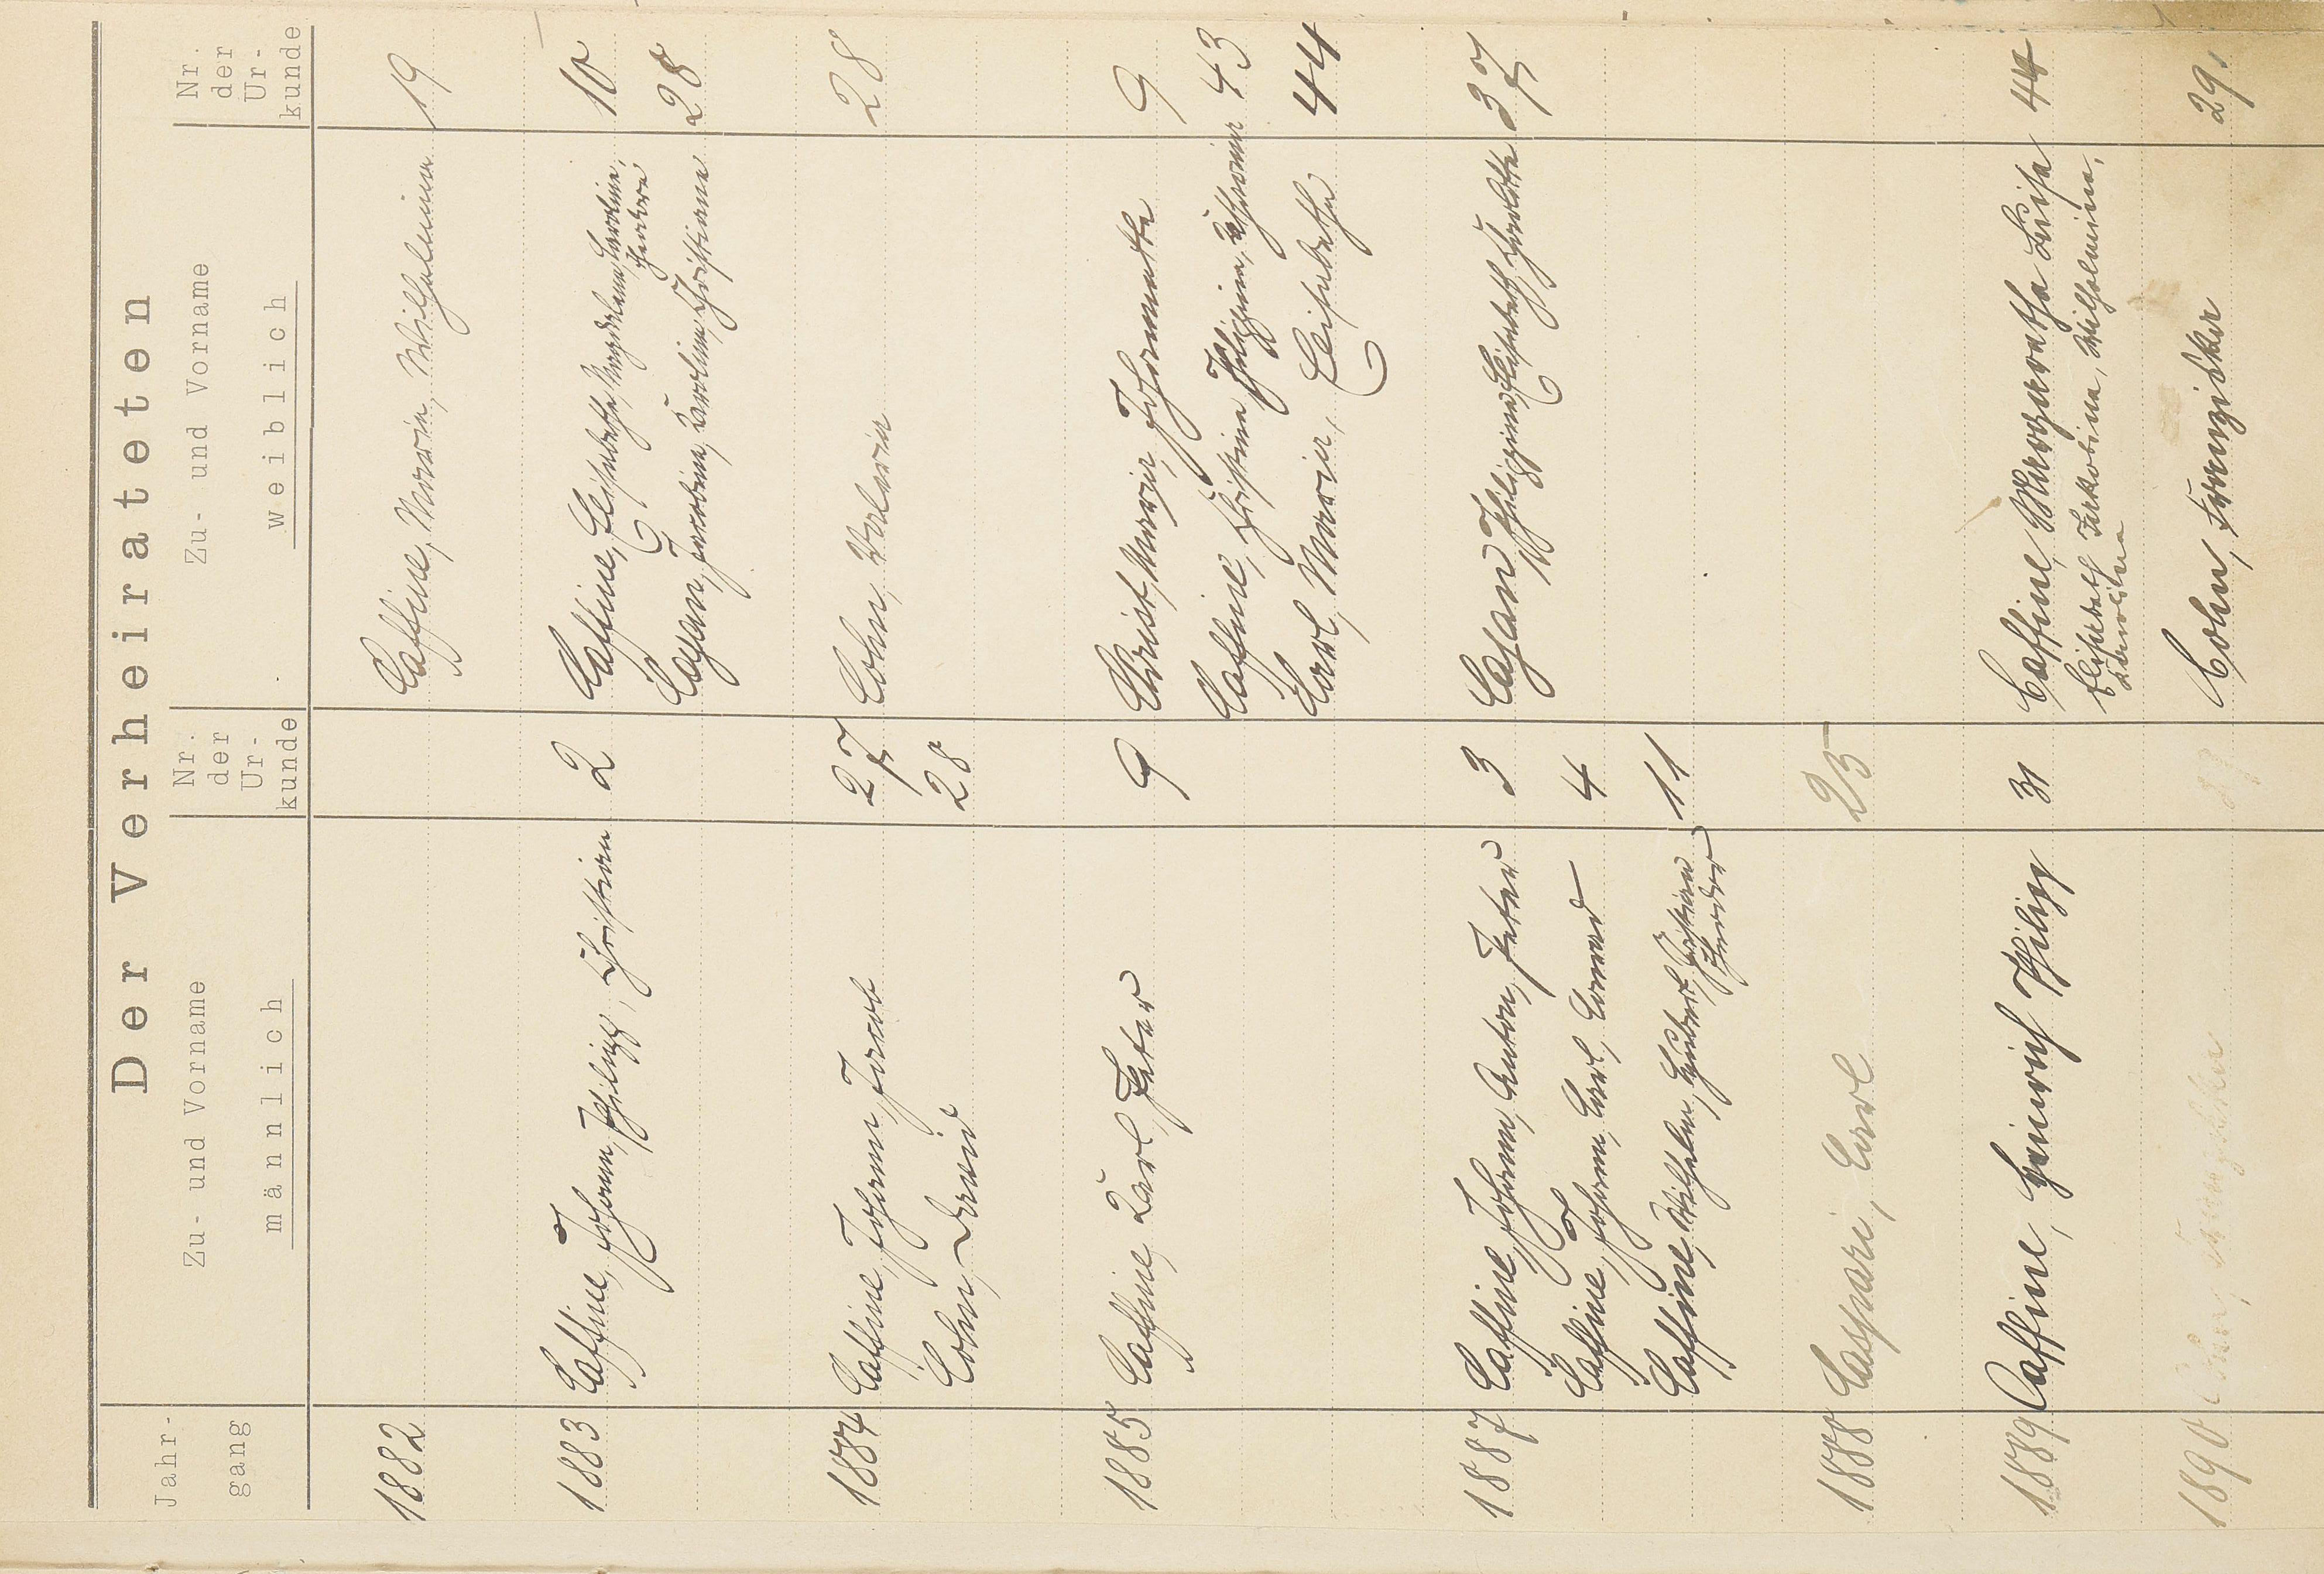 Der Verheirateten
Jahr-
gang
Zu- und Vorname
männlich
Nr.
der
Ur-
kunde
Zu- und Vorname
weiblich
Nr.
der
Ur-
kunde
1882 Caffine, Maria, Wilhelmine 19
1883 Caffine, Johann, Philipp, Christian 2 Caffine, Elisabetha, Magdalena, Caroline, 10
Theodora
Casar, Jacobine, Karoline, Christiane 28
1884 Caffine, Johann, Jacob 27 Cohn, Valeria 28
Cohn, David 28
1885 Caffine, Karl, Peter 9 Christ, Maria, Johannette 9
Caffine, Christine, Philippine, Catharine 43
Carl, Maria, Elisabetha 44
1887 Caffine, Johann, Anton, Peter 3 Casar, Philippine, Elisabeth, Charlotte 37
Caffine, Johann, Carl, Conrad 4
Caffine, Wilhelm, Hubert, Christian 11
Theodor
1888 Caspari, Carl 25
1889 Caffine, Heinrich Philipp 31 Caffine Margaretha Luise 44
Elisabeth Jakobina, Wilhelmina,
Karolina
1890 Cohn, Franziska 29.